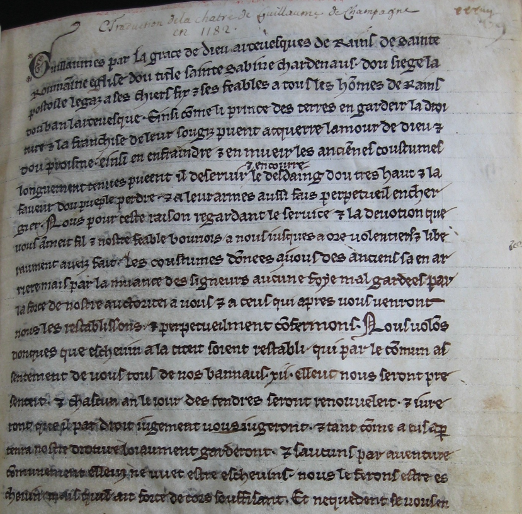 Traduction de la chatre de Guillaume de Champagne
en 1182.
Guillaumes par la grace de dieu arceuesques de Rains de sainte
Roumaine eglise dou title sainte Sabine chardenaus. dou siege la
postoile legaz a ses chiers fiz & ses feables a tous les hômes de Rains
dou ban larceuesque. Einsi côme li prince des terres en gardeir la droi
ture & la franchise de leur sougiz pueent acquerre lamour de dieu &
dou proisme. einsi en enfraindre & en mueir les anciênes coustumes
& encourre
longuement tenues pueent il deseruir le desdaing dou tres haut & la
faueur dou pueple perdre. & a leur armes aussi fais perpetueil encher
gier. Nous pour ceste raison regardant le seruice & la deuotion que
vous ameit fil & nostre feable bouriois a nous iusques a ore volentiers & libe
raument aueiz fait. les coustumes dônees a vous des anciens sa en ar
riere mais par la muance des signeurs aucune foye mal gardees par
la force de nostre auctoritei a vous & a ceus qui apres vous venront
nous les restablissons. & perpetueilment côfermons. Nous volôs
donques que escheuin a la citeit soient restabli. qui par le cômun as
sentement de vous tous de nos bannaus. xii. esleut nous seront pre
sentei. & chascun an le iour des cendres seront renouuelei. & iure
ront que il par droit iugement vous iugeront. & tant côme a eus apar
tenra nostre droiture loiaument garderont. & saucuns par auenture
cômunement esleuz ne vuet estre escheuins. nous le ferons estre es
cheuin mais quil ait force de cors souffisant. Et nequedent se vous en